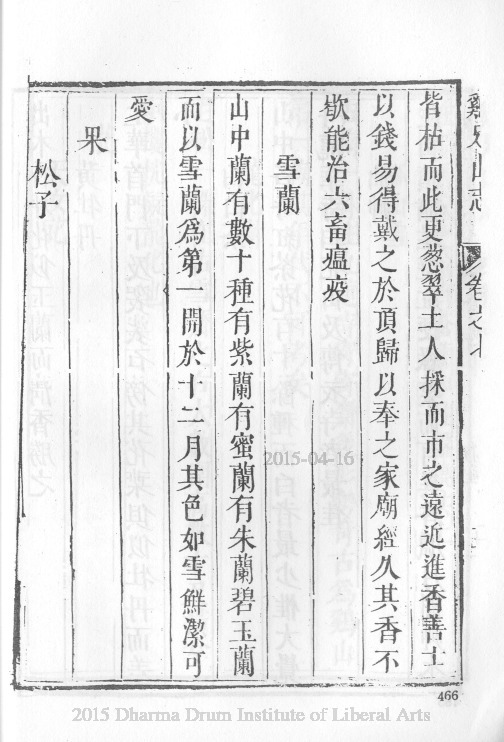 雞足山志 卷之七
皆枯而此更蔥翠土人採而市之遠近進香善士
以錢易得戴之於頂歸以奉之家廟經久其香不
歇能治六畜瘟疫
雪蘭
山中蘭有數十種有紫蘭有蜜蘭有朱蘭碧玉蘭
而以雪蘭爲第一開於十二月其色如雪鮮潔可
愛
果
松子
2015-04-16
466
2015 Dharma Drum Institute of Liberal Arts